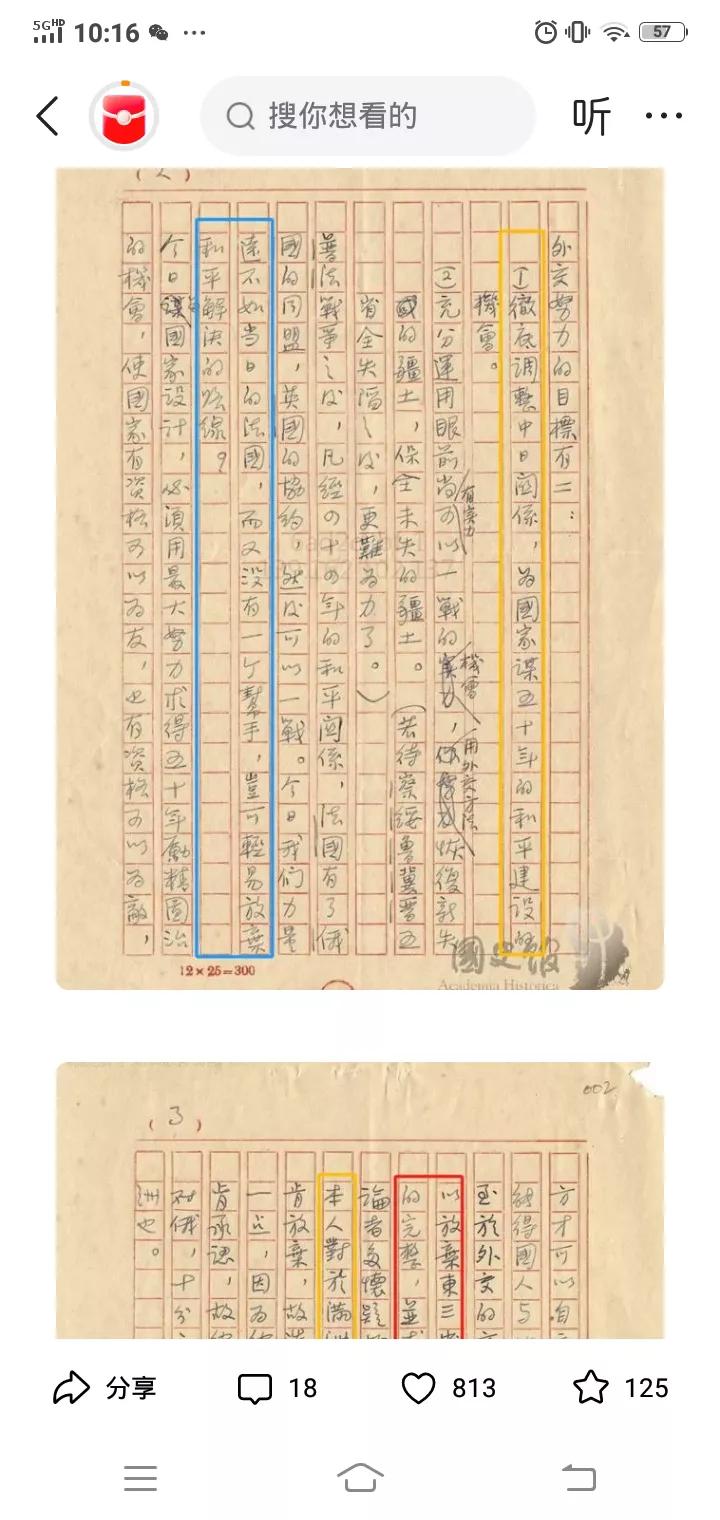 5G HD 10:16 ... 57
搜你想看的 听
(2)
外交努力的目標有二：
①徹底調整中日關係，為國家謀五十年的和平建設的
機會。
②充分運用眼前尚可以一戰的實力，恢復新失
有實力
機會
用外交方法
國的疆土，保全未失的疆土。（若待察綏魯冀晋五
省全失陷之後，更難為力了。）
普法戰爭之後，凡經四十四年的和平關係，法國有了俄
國的同盟，英國的協約，然後可以一戰。今日我們力量
遠不如当日的法國，而又没有一个幫手，豈可輕易放棄
和平解决的路線？
今日為國家設計，必須用最大努力求得五十年勵精圖治
的機會，使國家有資格可以為友，也有資格可以為敵，
12×25=300
國史館
Academia Historica
002
(3)
方才可以自
能得國人与
至於外交的方
以放棄東三省
的完整，並
論者多懷疑
本人對於滿洲
肯放棄，故
一点，因為
肯承認，故
対俄，十分
洲也。
分享 18 813 125